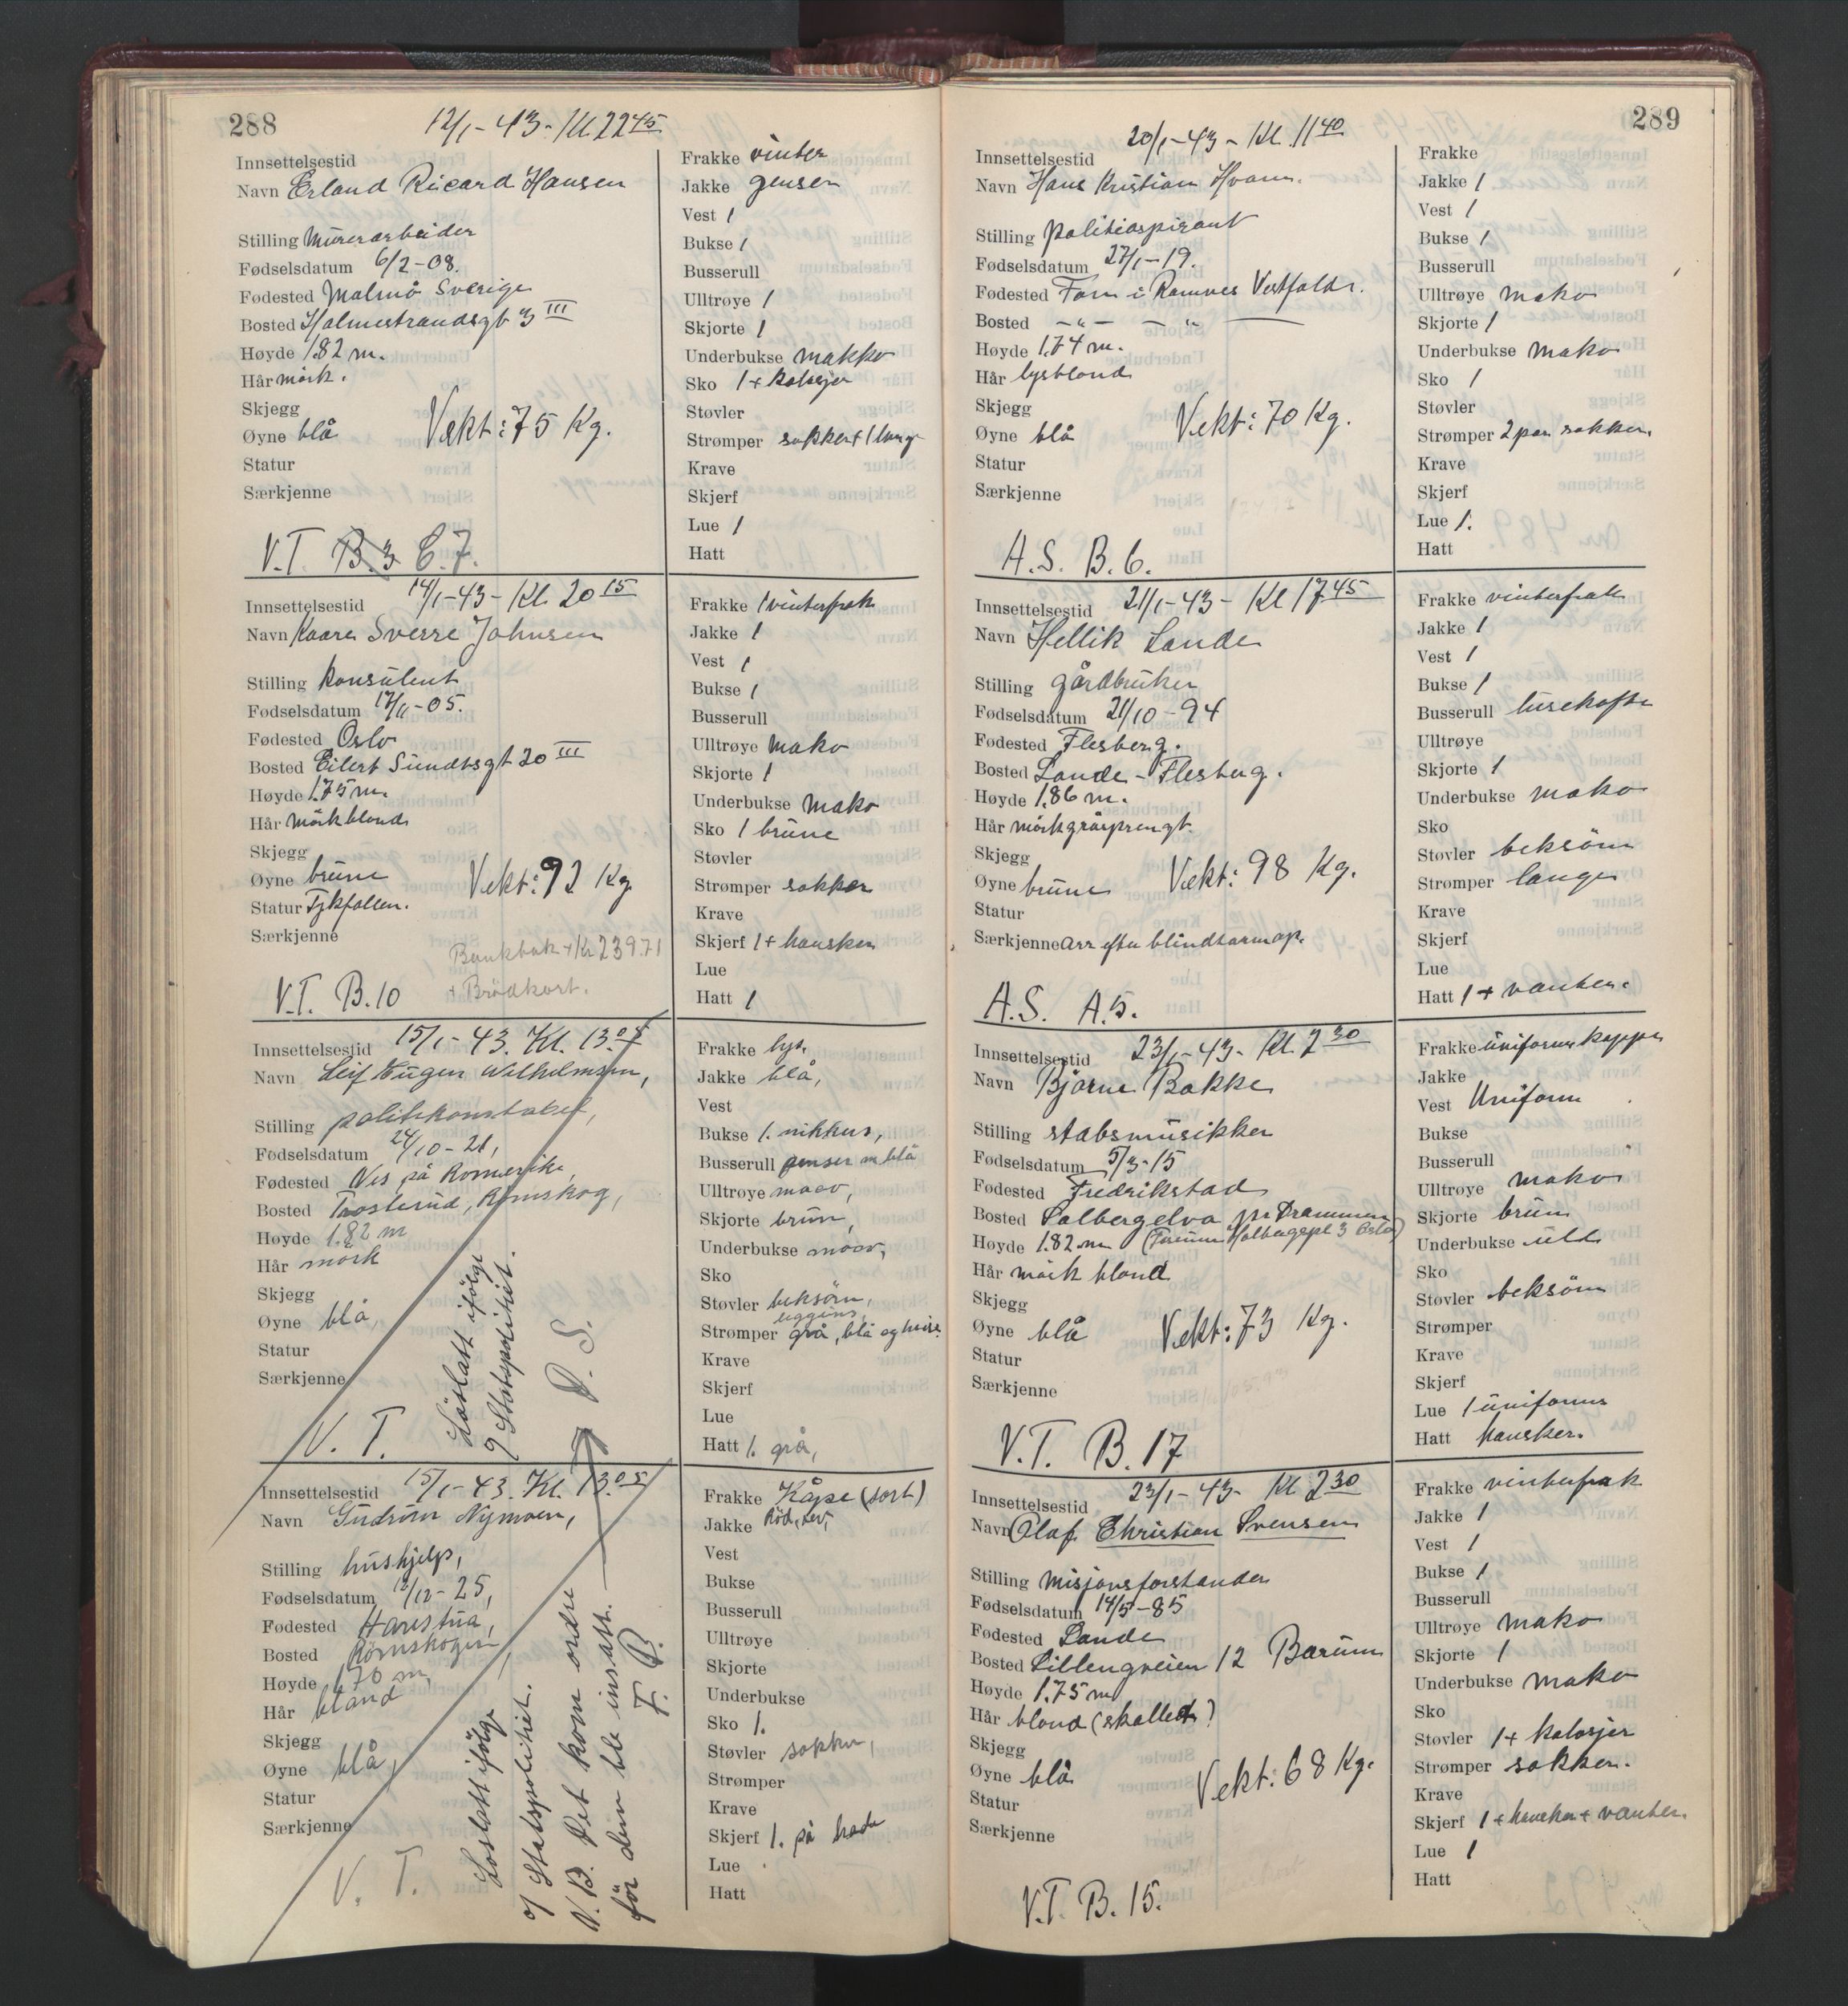 288
12/1-43- Kl. 22 45
Innsettelsestid
Navn Erland Ricard Hansen
Stilling Murerarbeider
Fødselsdatum 6/2-08.
Fødested Malmø Sverige
Bosted Holmestrandsgt 3 III
Høyde 1.82 m.
Hår mørk.
Skjegg
Øyne blå Vekt: 75 Kg.
Statur
Særkjenne
V.T. B.3 C.7.
Frakke vinter
Jakke genser
Vest 1
Bukse 1
Busserull
Ulltrøye 1
Skjorte 1
Underbukse makko
Sko 1 + kalosjer
Støvler
Strømper sokker + 1 lange
Krave
Skjerf
Lue 1
Hatt
Innsettelsestid 14/1-43- Kl. 20 15
Navn Kaare Sverre Johnsen
Stilling konsulent
Fødselsdatum 17/11-05.
Fødested Oslo
Bosted Eilert Sundtsgt 20 III
Høyde 1.75 m.
Hår mørkblond
Skjegg
Øyne brune Vekt: 92 Kg.
Statur Tykfallen.
Særkjenne
Bankbok + Kr 239.71
V.T. B.10 + Brødkort.
Frakke 1 vinterfrak
Jakke 1
Vest 1
Bukse 1
Busserull
Ulltrøye mako
Skjorte 1
Underbukse mako
Sko 1 brune
Støvler
Strømper sokker
Krave
Skjerf 1 + hansker
Lue
Hatt 1
Innsettelsestid 15/1-43. Kl. 13.05
Navn Leif Eugen Wilhelmsen,
Stilling politikonstabel,
Fødselsdatum 24/10-21,
Fødested Nes på Romerike,
Bosted Trosterud, Rømskog,
Høyde 1.82 m
Hår mørk
Skjegg
Øyne blå,
Statur
Særkjenne
V. T.
Løslatt ifølge
Statspolitiet.
D. S.
Frakke lys,
Jakke blå,
Vest
Bukse 1. nikkers,
Busserull genser m blå
Ulltrøye maco,
Skjorte brun,
Underbukse maco,
Sko
Støvler beksøm,
leggins,
Strømper grå, blå og hvite.
Krave
Skjerf
Lue
Hatt 1. grå,
Innsettelsestid 15/1-43. Kl. 13.05
Navn Gudrun Nymoen,
Stilling hushjelp,
Fødselsdatum 12/12-25,
Fødested Harestua,
Bosted Rømskogen
Høyde 1.70 m,
Hår blond
Skjegg
Øyne blå,
Statur
Særkjenne
V. T.
Løslatt ifølge
Statspolitiet.
N.B. Det kom ordre
før dem ble insatt.
F. B.
Frakke Kåpe (sort)
Jakke Rød,
Vest
Bukse
Busserull
Ulltrøye
Skjorte
Underbukse
Sko 1.
Støvler sokker,
Strømper
Krave
Skjerf 1. på hode
Lue
Hatt
289
20/1-43- Kl. 11 40
Innsettelsestid
Navn Hans Kristian Hvam.
Stilling politiaspirant
Fødselsdatum 27/1-19.
Fødested Fon i Ramnes Vestfold.
Bosted -"- -"-
Høyde 1.74 m.
Hår lysblond
Skjegg
Øyne blå Vekt: 70 Kg.
Statur
Særkjenne
A.S. B.6.
Frakke
Jakke 1
Vest 1
Bukse 1
Busserull
Ulltrøye mako
Skjorte 1
Underbukse mako
Sko 1
Støvler
Strømper 2 par sokker.
Krave
Skjerf
Lue 1.
Hatt
Innsettelsestid 21/1-43- Kl 17 45
Navn Hellik Lande
Stilling gårdbruker
Fødselsdatum 21/10-94
Fødested Flesberg.
Bosted Lande - Flesberg.
Høyde 1.86 m.
Hår mørk gråsprengt.
Skjegg
Øyne brune Vekt: 98 Kg.
Statur
Særkjenne arr efter blindtarmop.
A.S. A.5.
Frakke vinterfrak
Jakke 1
Vest 1
Bukse 1
Busserull lusekofte
Ulltrøye
Skjorte 1
Underbukse mako
Sko
Støvler beksøm
Strømper lange
Krave
Skjerf
Lue
Hatt 1 + vanter.
Innsettelsestid 23/1-43- Kl. 2 30
Navn Bjarne Bakke
Stilling stabsmusikker
Fødselsdatum 5/3-15
Fødested Fredrikstad
Bosted Solbergelva pr Drammen
Høyde 1.82 m (Holbergspl 3 Oslo)
Hår mørk blond
Skjegg
Øyne blå Vekt: 73 Kg.
Statur
Særkjenne
V.T. B.17
Frakke uniformskappe
Jakke
Vest Uniform
Bukse
Busserull
Ulltrøye mako
Skjorte brun
Underbukse ull
Sko
Støvler beksøm
Strømper
Krave
Skjerf
Lue 1 uniforms
Hatt hansker.
Innsettelsestid 23/1-43- Kl 2 30
Navn Olaf Christian Svensen
Stilling Misjonsforstander
Fødselsdatum 14/5-85
Fødested Sande
Bosted Lillengveien 12 Bærum
Høyde 1.75 m
Hår blond (skallet)
Skjegg
Øyne blå Vekt: 68 Kg.
Statur
Særkjenne
V.T. B.15.
Frakke vinterfrak
Jakke 1
Vest 1
Bukse 1
Busserull
Ulltrøye mako
Skjorte 1
Underbukse mako
Sko
Støvler 1 + kalosjer
Strømper sokker.
Krave
Skjerf 1 + hansker + vanter.
Lue 1
Hatt